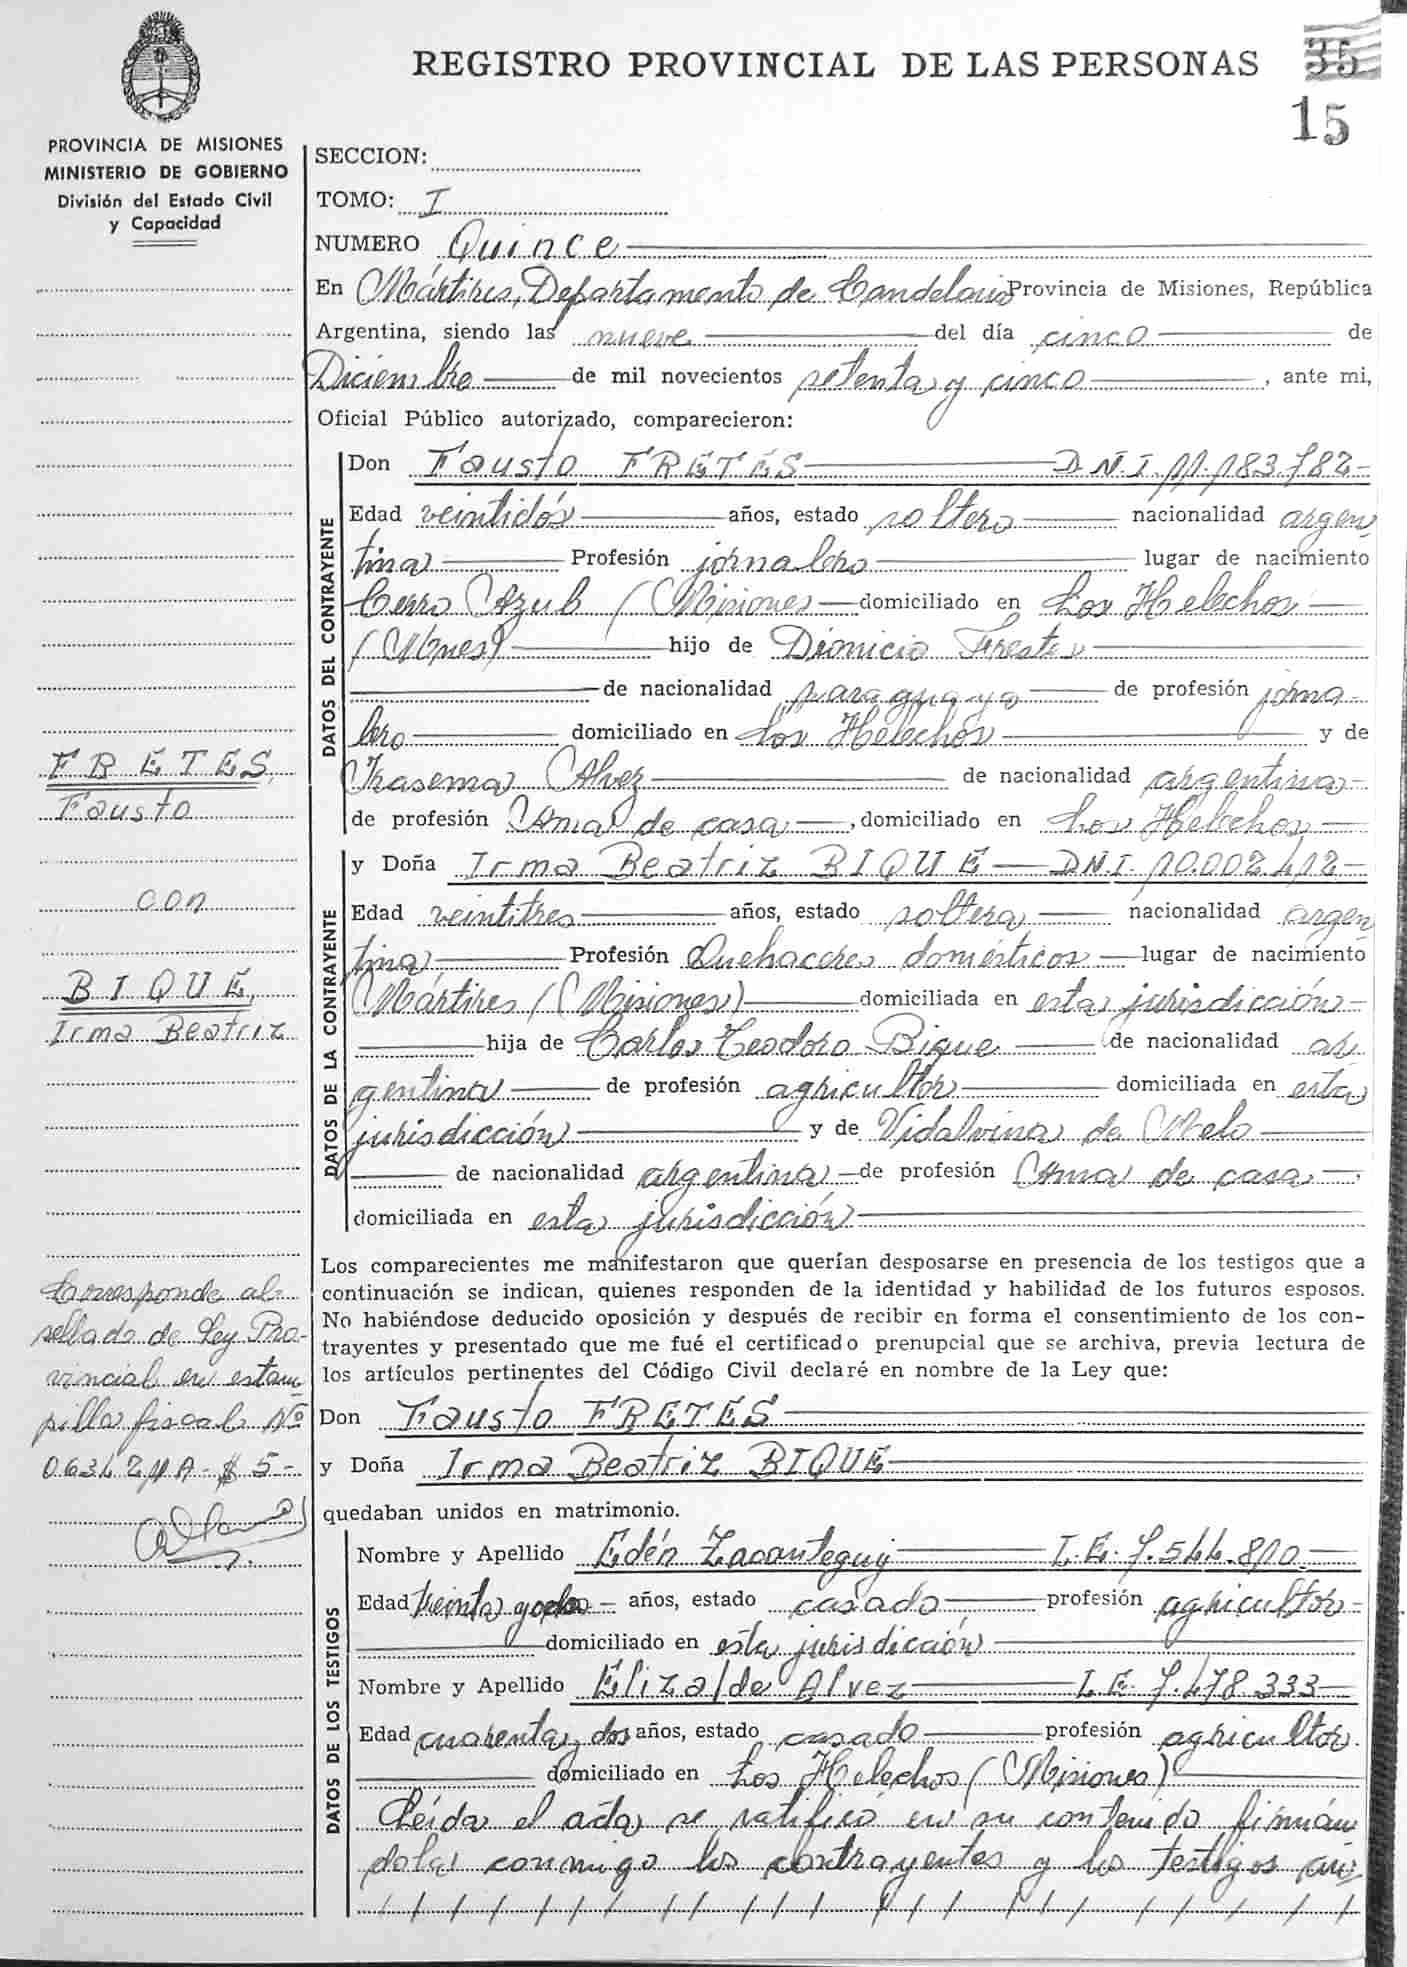 REGISTRO PROVINCIAL DE LAS PERSONAS
35
15
PROVINCIA DE MISIONES
MINISTERIO DE GOBIERNO
División del Estado Civil
y Capacidad
SECCION:
TOMO: I
NUMERO Quince
En Mártires, Departamento de Candelaria Provincia de Misiones, República
Argentina, siendo las nueve del día cinco de
Diciembre de mil novecientos setenta y cinco, ante mi,
Oficial Público autorizado, comparecieron:
DATOS DEL CONTRAYENTE
Don Fausto FRETES D.N.I. 11.183.782
Edad veintidós años, estado soltero nacionalidad argen
tina Profesión jornalero lugar de nacimiento
Cerro Azul (Misiones domiciliado en Los Helechos
(Mnes) hijo de Dionicio Fretes
de nacionalidad paraguayo de profesión jorna-
lero domiciliado en Los Helechos y de
Irasema Alvez de nacionalidad argentina
de profesión Ama de casa, domiciliado en Los Helechos
DATOS DE LA CONTRAYENTE
y Doña Irma Beatriz BIQUE D.N.I. 10.002.412
Edad veintitres años, estado soltera nacionalidad argen
tina Profesión Quehaceres domésticos lugar de nacimiento
Mártires (Misiones) domiciliada en esta jurisdicción
hija de Carlos Teodoro Bique de nacionalidad ar
gentina de profesión agricultor domiciliada en esta
jurisdicción y de Vidalvina de Melo
de nacionalidad argentina de profesión Ama de casa
domiciliada en esta jurisdicción
FRETES,
Fausto
con
BIQUE,
Irma Beatriz
Los comparecientes me manifestaron que querían desposarse en presencia de los testigos que a
continuación se indican, quienes responden de la identidad y habilidad de los futuros esposos.
No habiéndose deducido oposición y después de recibir en forma el consentimiento de los con-
trayentes y presentado que me fué el certificado prenupcial que se archiva, previa lectura de
los artículos pertinentes del Código Civil declaré en nombre de la Ley que:
Don Fausto FRETES
y Doña Irma Beatriz BIQUE
quedaban unidos en matrimonio.
Corresponde al
sellado de Ley Pro-
vincial en estam
pilla fiscal Nº
A- $ 5-
DATOS DE LOS TESTIGOS
Nombre y Apellido Edén Zacanteguy L.E. 7.544.810
Edad treinta y ocho años, estado casado profesión agricultor
domiciliado en esta jurisdicción
Nombre y Apellido Elizalde Alvez L.E. 7.478.333
Edad cuarenta y dos años, estado casado profesión agricultor
domiciliado en Los Helechos (Misiones)
Leída el acta se ratificó en su contenido firmán
dola conmigo los contrayentes y los testigos